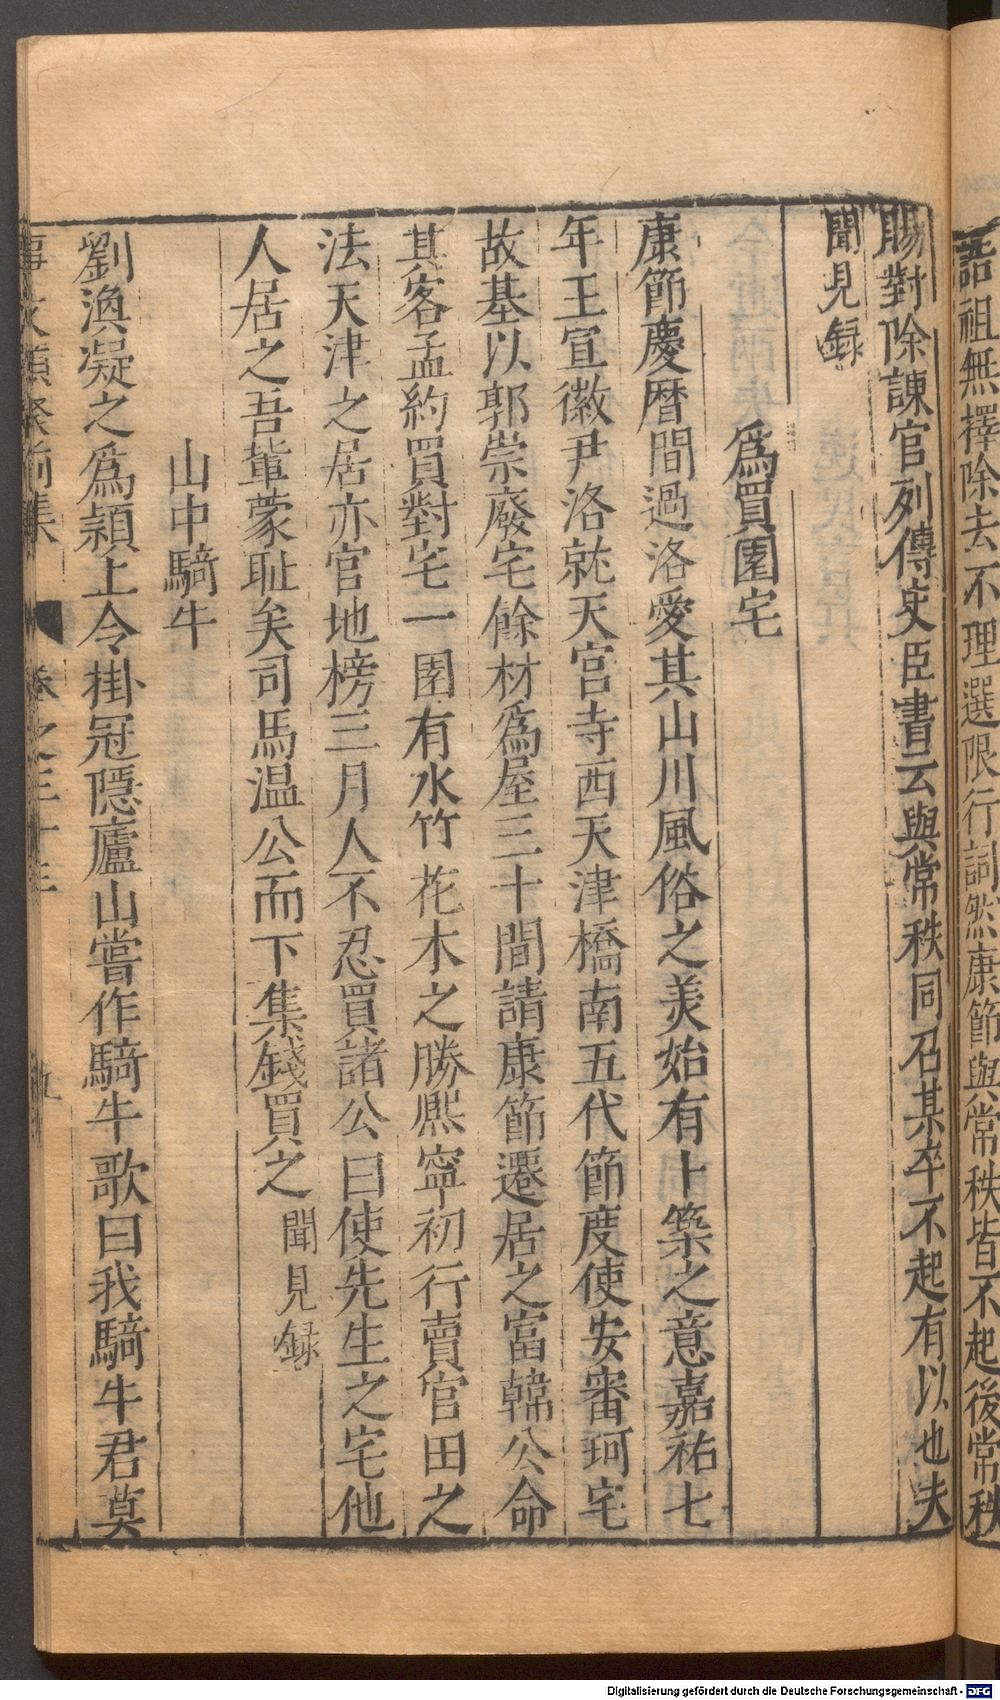 誥祖無擇除去不理選限行詞然康節與常秩皆不起後常秩
賜對除諌官列傳史臣書云與常秩同召某卒不起有以也夫
聞見録
爲買園宅
康節慶暦間過洛愛其山川風俗之美始有卜築之意嘉祐七
年王宣徽尹洛就天宮寺西天津橋南五代節度使安審珂宅
故基以郭崇廢宅餘材爲屋三十間請康節遷居之富韓公命
其客孟約買對宅一園有水竹花木之勝熈寧初行賣官田之
法天津之居亦官地榜三月人不忍買諸公曰使先生之宅他
人居之吾軰蒙耻矣司馬温公而下集錢買之聞見録
山中騎牛
劉渙凝之爲潁上令掛冠隱廬山嘗作騎牛歌曰我騎牛君莫
事文類聚前集 卷之三十三 九
Digitalisierung gefördert durch die Deutsche Forschungsgemeinschaft - DFG